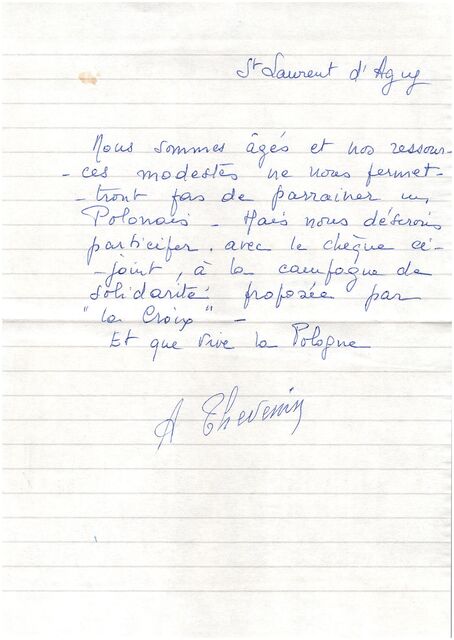 St Laurent d'Agny
Nous sommes âgés et nos ressour-
-ces modestes ne nous permet-
-tront pas de parrainer un
Polonais - Mais nous désirons
participer, avec le chèque ci-
-joint, à la campagne de
solidarité proposée par
"la Croix" -
Et que vive la Pologne
A Thevenin